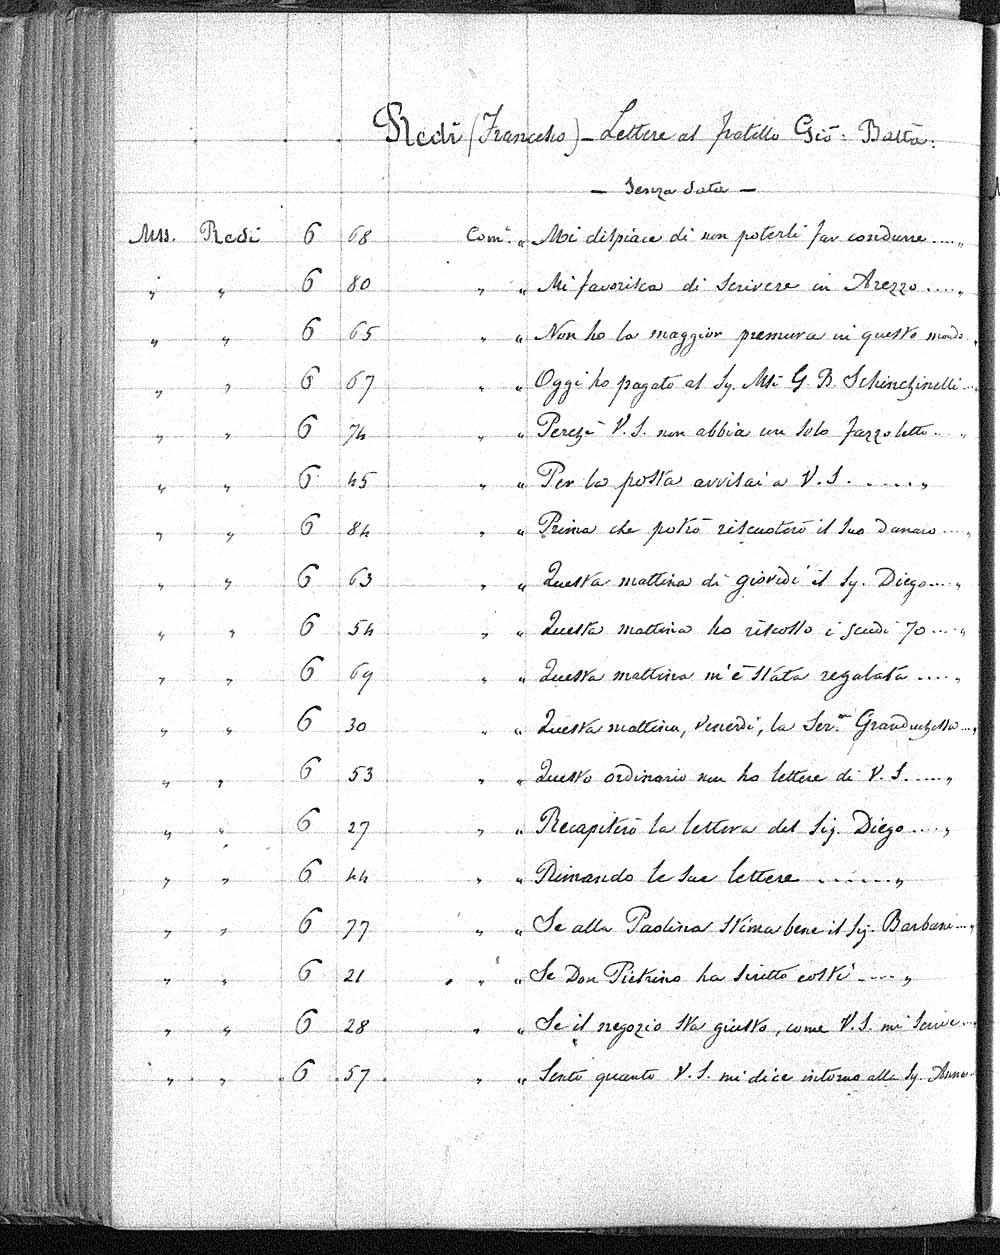 Redi (Francesco) – Lettere al fratello Gio: Batta.
– Senza data –
Mss. Redi 6 68 Com. „ Mi dispiace di non poterli far condurre .... „
„ „ 6 80 „ „ Mi favorisca di scrivere in Arezzo .... „
„ „ 6 65 „ „ Non ho la maggior premura in questo mondo „
„ „ 6 67 „ „ Oggi ho pagato al Sg. G. B. Schinchinelli ... „
„ „ 6 74 „ „ Perchè V. S. non abbia un solo fazzoletto ... „
„ „ 6 45 „ „ Per la posta avvisai a V. S. ..... „
„ „ 6 84 „ „ Prima che potrò riscuoterò il suo danaro .... „
„ „ 6 63 „ „ Questa mattina di giovedì il Sg. Diego .... „
„ „ 6 54 „ „ Questa mattina ho riscosso i scudi 70 .... „
„ „ 6 69 „ „ Questa mattina m'è stata regalata .... „
„ „ 6 30 „ „ Questa mattina, venerdì, la Ser.ma Granduchessa ... „
„ „ 6 53 „ „ Questo ordinario non ho lettere di V. S. .... „
„ „ 6 27 „ „ Recapiterò la lettera del Sig. Diego .... „
„ „ 6 44 „ „ Rimando le sue lettere ...... „
„ „ 6 77 „ „ Se alla Paolina stima bene il Sg. Barbani ... „
„ „ 6 21 „ „ Se Don Pietrino ha scritto costì .... „
„ „ 6 28 „ „ Se il negozio sta giusto, come V. S. mi scrive ... „
„ „ 6 57 „ „ Sento quanto V. S. mi dice intorno alla Sg. Anna